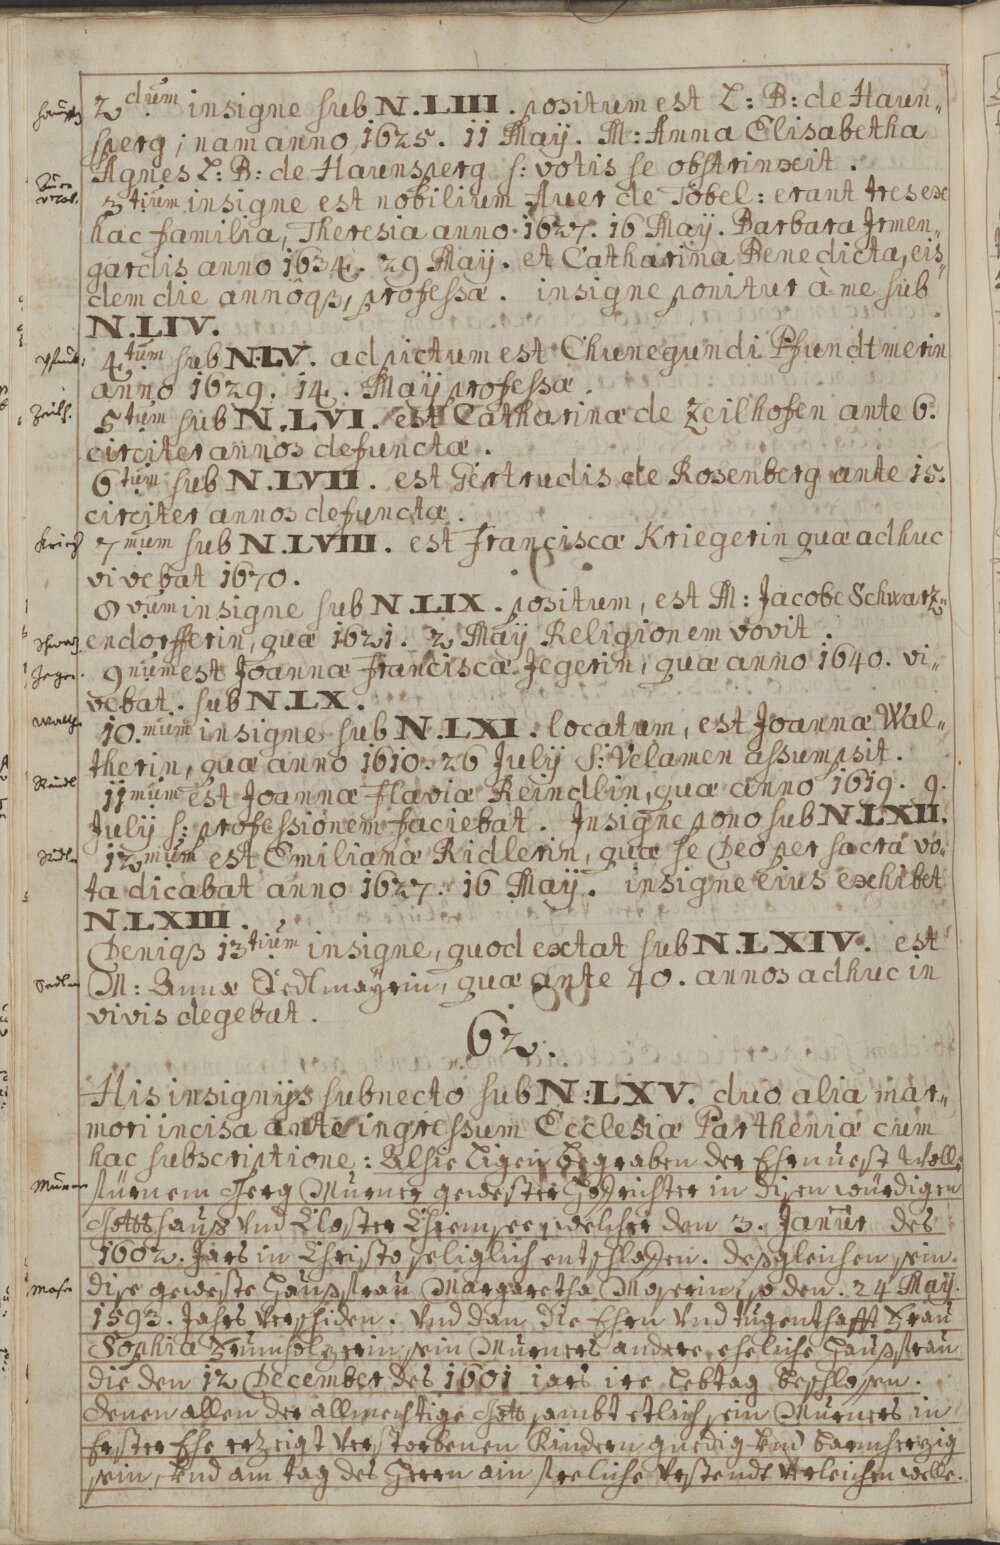 2dum insigne sub N.LIII. positum est L: B: de Haun„
sperg; nam anno 1625. 11 Maÿ. M: Anna Elisabetha
Agnes L: B: de Haunsperg s: votis se obstrinxit.
3tium insigne est nobilium Auer de Tobel: erant tres ex
hac familia, Theresia anno 1627. 16 Maÿ. Barbara Irmen„
gardis anno 1634. 29 Maÿ. et Catharina Benedicta, eis„
dem die annoqȝ, professæ. insigne ponitur à me sub
N.LIV.
4tum sub N.LV. adpictum est Chunegundi Pfundtmerin
anno 1629. 14. Maÿ professæ.
5tum sub N.LVI. est Catharinæ de Zeilhofen ante 6.
circiter annos defunctæ.
6tum sub N.LVII. est Gertrudis de Rosenberg ante 15.
circiter annos defunctæ.
7mum sub N.LVIII. est Franciscæ Kriegerin quæ adhuc
vivebat 1670.
8vum insigne sub N.LIX. positum, est M: Jacobe Schwarz„
endorfferin, quæ 1621. 2 Maÿ Religionem vovit.
9num est Joannæ Franciscæ Jegerin, quæ anno 1640. vi„
vebat. sub N.LX.
10.mum insigne sub N.LXI. locatum, est Joannæ Wal„
therin, quæ anno 1610. 26 Julij S: Velamen assumpsit.
11mum est Joannæ Flaviæ Reindlin, quæ anno 1619. 9.
Julij s: professionem faciebat. Insigne pono sub N.LXII.
12mum est Emilianæ Ridlerin, quæ se Deo per sacra vo„
ta dicabat anno 1627. 16 Maÿ. insigne eius exhibet
N.LXIII.
Deniqȝ 13tium insigne, quod extat sub N.LXIV. est
M: Annæ Sedlmaÿrin, quæ ante 40. annos adhuc in
vivis degebat.
62.
His insignijs subnecto sub N:LXV. duo alia mar„
mori incisa ante ingressum Ecclesiæ Partheniæ cum
hac subscriptione: Alhie Ligen Begraben der Ehrnuest Woll„
fürnem Jerg Murner gewester Hofrichter in disen würdigen
Gottshauß Vnd Closter Chiemsee, welcher den 3. Januar des
1602. Jars in Christo seliglich entschlaffen. deßgleichen sein
dise geweste Haußfrau Margaretha Moserin, so den. 24 Maÿ.
1593. Jahrs Verschiden. Vnd dan die Ehrn Vnd tugenthafft Frau
Sophia Frumholzerin sein Murners andere eheliche Haußfrau
die den 12 December des 1601 iars ire Lebtag beschlosen.
denen allen der allmechtige Gott sambt etlich sein Murners in
Erster Ehe erzeigt Verstorbenen Kindern gnedig Vnd barmherzig
sein, Vnd am tag des Herrn ain freliche Vrstendt Verleichen welle.
Pfundt.
Zeilh.
Krieg
Schwarz
Jeger.
Walth.
Reindl
Ridler
Sedlm
Murner
Moser